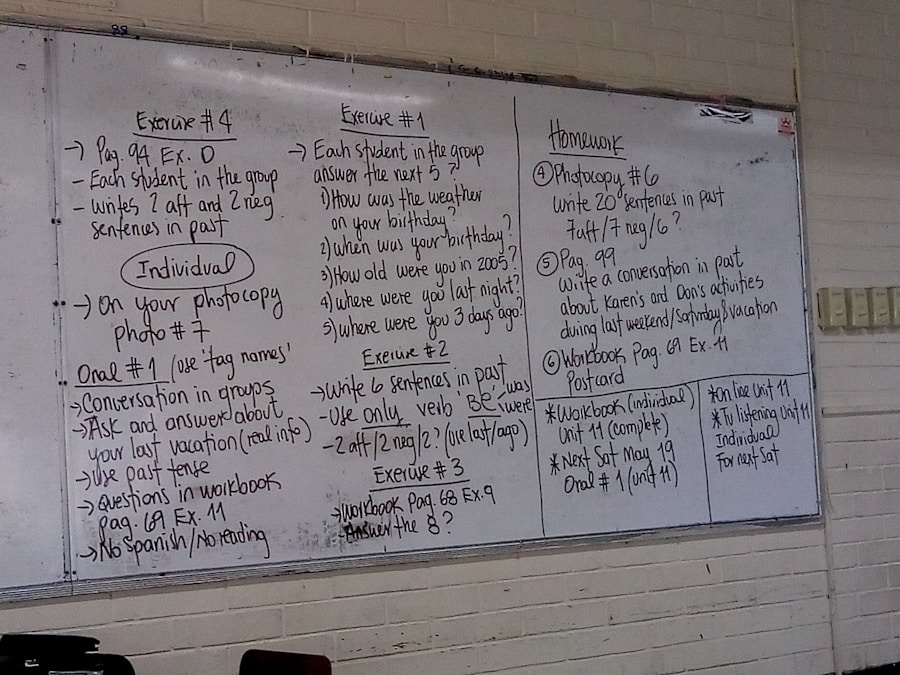 Exercise # 4
→ Pag. 94 Ex. D
- Each student in the group
- writes 2 aff and 2 neg
sentences in past
Individual
→ On your photocopy
photo # 7
Oral # 1 (use 'tag names'
→ Conversation in groups
→ Ask and answer about
your last vacation (real info)
→ Use past tense
→ Questions in workbook
pag. 69 Ex. 11
→ No Spanish/No reading
Exercise # 1
→ Each student in the group
answer the next 5 ?
1) How was the weather
on your birthday?
2) when was your birthday?
3) How old were you in 2005?
4) where were you last night?
5) where were you 3 days ago?
Exercise # 2
→ Write 6 sentences in past
- Use only verb 'Be' was
were
- 2 aff/2 neg/2? (use last/ago)
Exercise # 3
→ Workbook Pag. 68 Ex. 9
- Answer the 8 ?
Homework
④ Photocopy # 6
Write 20 sentences in past
7 aff/7 neg/6 ?
⑤ Pag. 99
Write a conversation in past
about Karen's and Don's activities
during last weekend/Saturday & vacation
⑥ Workbook Pag. 69 Ex. 11
Postcard
* Workbook (individual)
Unit 11 (complete)
* Next Sat May 19
Oral # 1 (unit 11)
* Online Unit 11
* Tv listening Unit 11
Individual
For next Sat